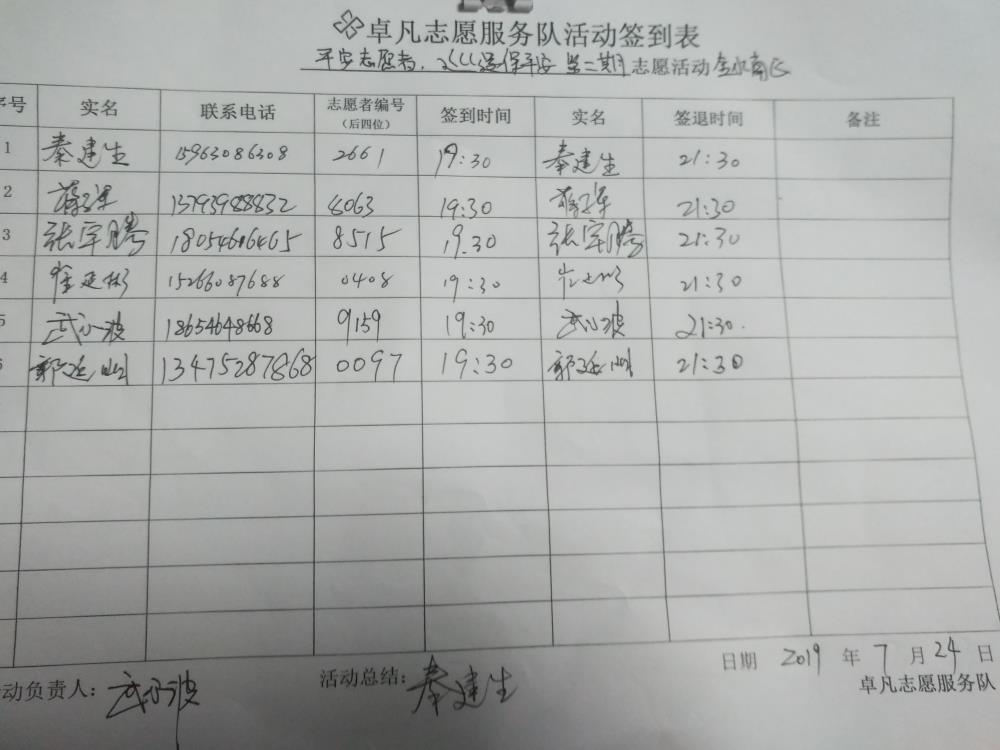 卓凡志愿服务队活动签到表
平安志愿者, 保平安 第二期 志愿活动
序号 实名 联系电话 志愿者编号(后四位) 签到时间 实名 签退时间 备注
1 秦建生 15963086308 2661 19:30 秦建生 21:30
2 15793988832 8063 19:30 21:30
3 张宇腾 18054606465 8515 19.30 张宇腾 21:30
4 15266087688 0408 19:30 21:30
5 武小波 18654648668 9159 19:30 武小波 21:30.
6 郭延 13475287868 0097 19:30 郭延 21:30
日期 2019 年 7 月 24 日
活动负责人: 武小波 活动总结: 秦建生 卓凡志愿服务队